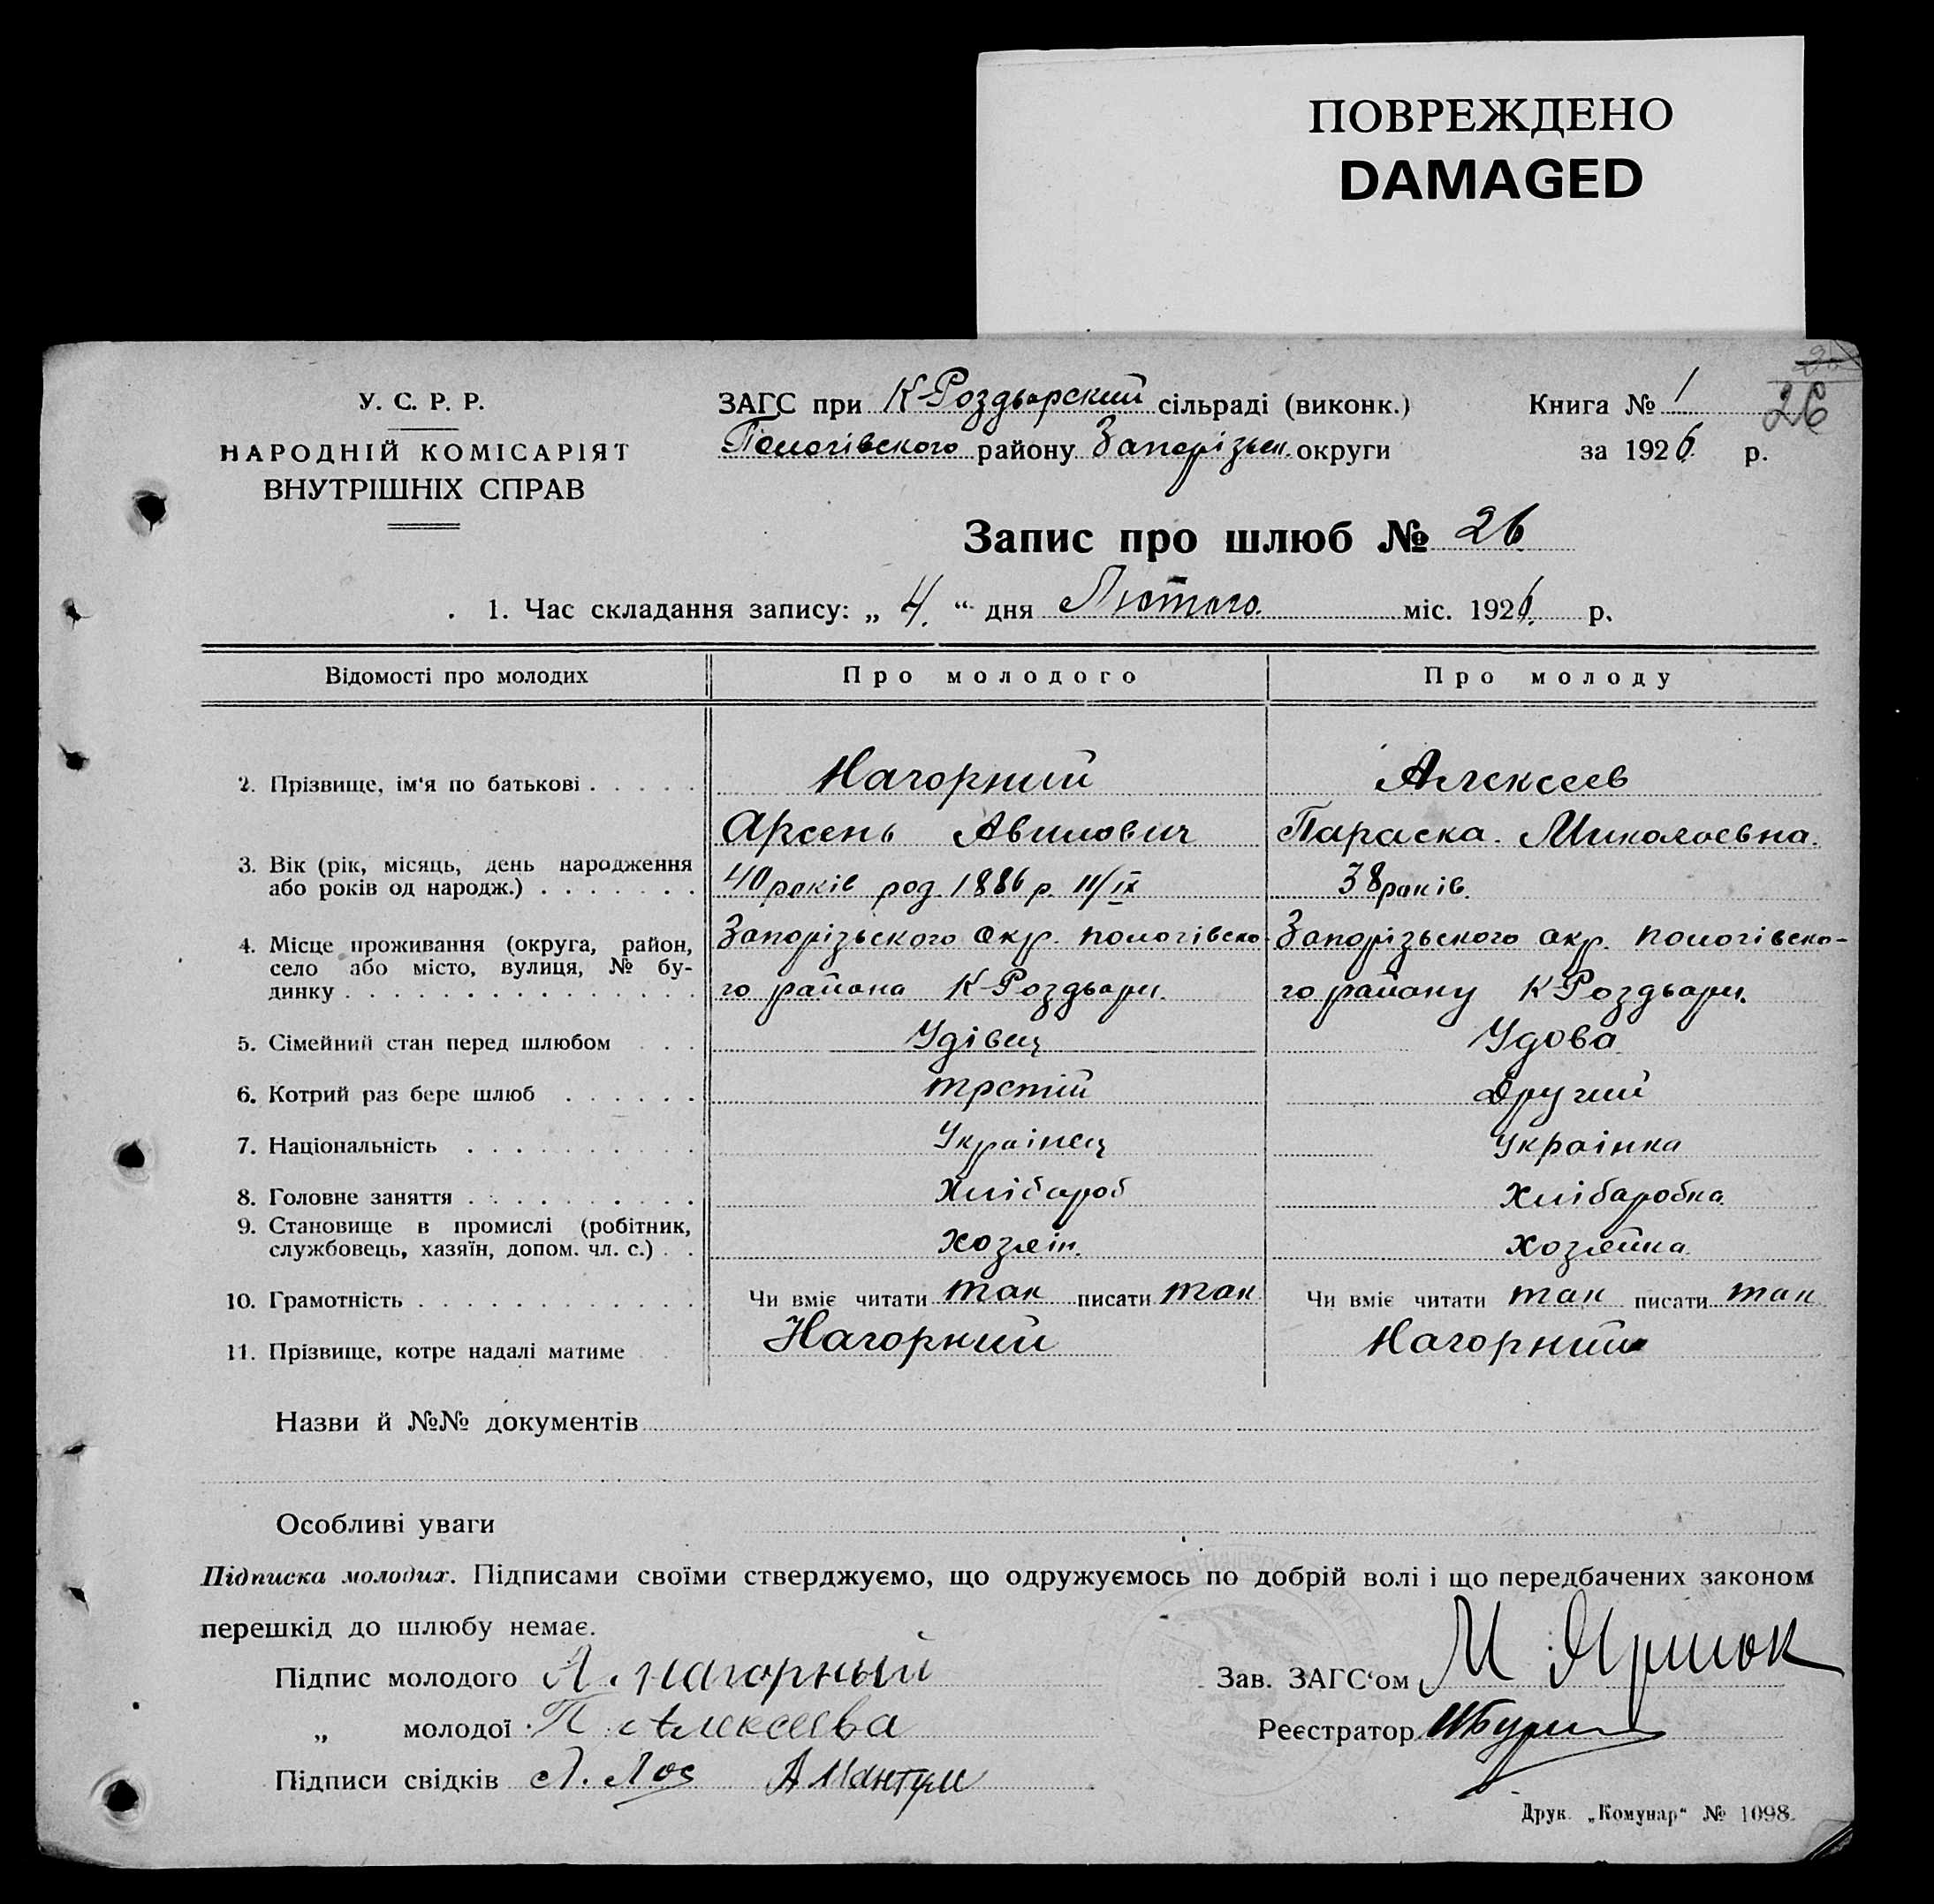 ПОВРЕЖДЕНО
DAMAGED
У. С. Р. Р.
НАРОДНІЙ КОМІСАРІЯТ
ВНУТРІШНІХ СПРАВ
ЗАГС при К-Роздорский сільраді (виконк.)
Пологівского району Запорізьк. округи
Книга № 1
26
за 1926 р.
Запис про шлюб № 26
1. Час складання запису: „ 4. “ дня Лютого міс. 1926. р.
Відомості про молодих Про молодого Про молоду
2. Прізвище, ім'я по батькові Нагорний Алексеев
Арсень Авилович Параска. Миколаєвна.
3. Вік (рік, місяць, день народження
або років од народж.) 40 років род 1886 р. 11/IX 38 років.
4. Місце проживання (округа, район, Запорізьского окр. пологівско- Запорізьского окр. пологівско-
село або місто, вулиця, № бу-
динку го района К-Роздори. го району К-Роздори.
5. Сімейний стан перед шлюбом Удівец Удова
6. Котрий раз бере шлюб третій Другий
7. Національність Українец Українка
8. Головне заняття Хлібароб Хлібаробка
9. Становище в промислі (робітник,
службовець, хазяїн, допом. чл. с.) хозяін. хозяйка.
10. Грамотність Чи вміє читати так писати так Чи вміє читати так писати так
11. Прізвище, котре надалі матиме Нагорний Нагорний
Назви й №№ документів
Особливі уваги
Підписка молодих. Підписами своїми стверджуємо, що одружуємось по добрій волі і що передбачених законом
перешкід до шлюбу немає.
Підпис молодого А. Нагорный
Зав. ЗАГС'ом М
„ молодої П. Алексеева
Реєстратор
Підписи свідків Л. Лос
Друк. „Комунар“ № 1098.